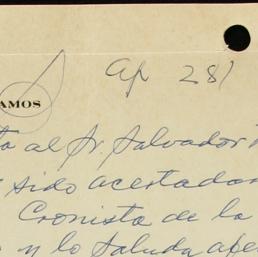 Ap 281
AMOS
al Sr. Salvador
sido acertada
Cronista de la
y lo saluda